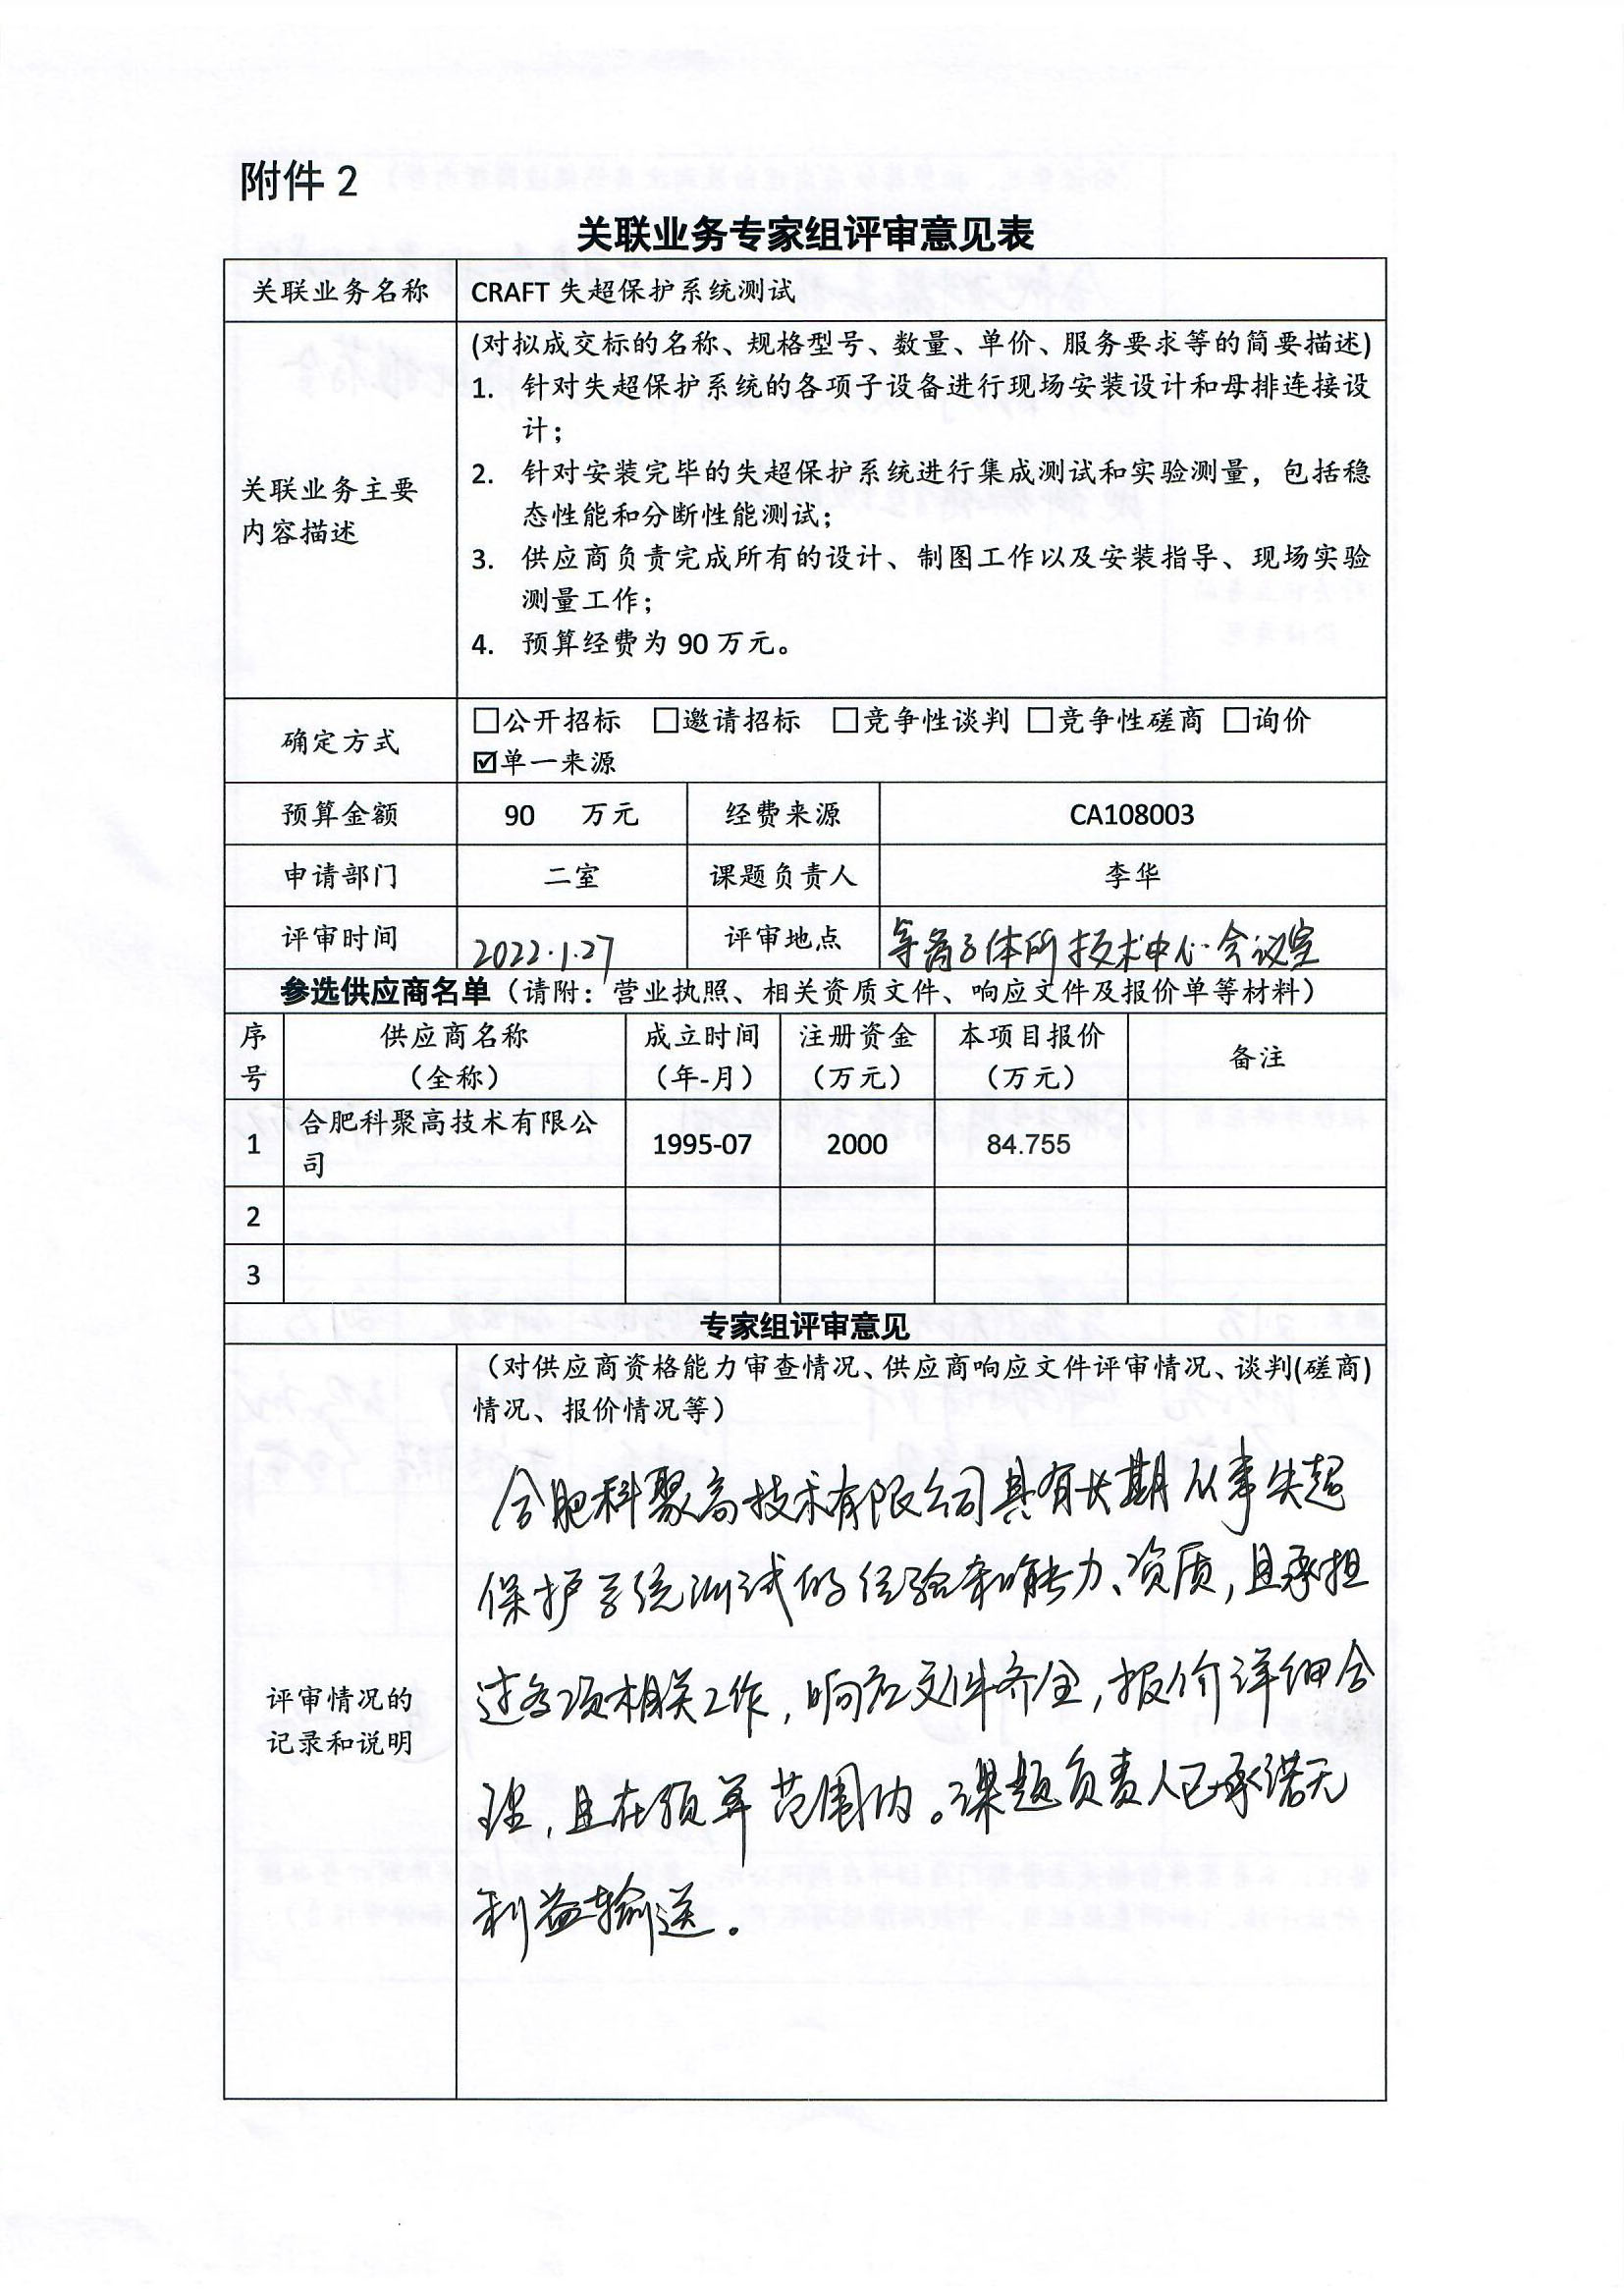 附件 2
关联业务专家组评审意见表
关联业务名称 CRAFT 失超保护系统测试
关联业务主要内容描述
(对拟成交标的名称、规格型号、数量、单价、服务要求等的简要描述)
1. 针对失超保护系统的各项子设备进行现场安装设计和母排连接设
计；
2. 针对安装完毕的失超保护系统进行集成测试和实验测量，包括稳
态性能和分断性能测试；
3. 供应商负责完成所有的设计、制图工作以及安装指导、现场实验
测量工作；
4. 预算经费为 90 万元。
确定方式
☐公开招标 ☐邀请招标 ☐竞争性谈判 ☐竞争性磋商 ☐询价
☑单一来源
预算金额 90 万元 经费来源 CA108003
申请部门 二室 课题负责人 李华
评审时间 2022.1.27 评审地点 等离子体所技术中心会议室
参选供应商名单（请附：营业执照、相关资质文件、响应文件及报价单等材料）
序号 供应商名称（全称） 成立时间（年-月） 注册资金（万元） 本项目报价（万元） 备注
1 合肥科聚高技术有限公司 1995-07 2000 84.755
2
3
专家组评审意见
评审情况的
记录和说明
（对供应商资格能力审查情况、供应商响应文件评审情况、谈判(磋商)
情况、报价情况等）
合肥科聚高技术有限公司具有长期从事失超
保护系统测试的经验和能力、资质，且承担
过多项相关工作，响应文件齐全，报价详细合
理，且在预算范围内。课题负责人已承诺无
利益输送。